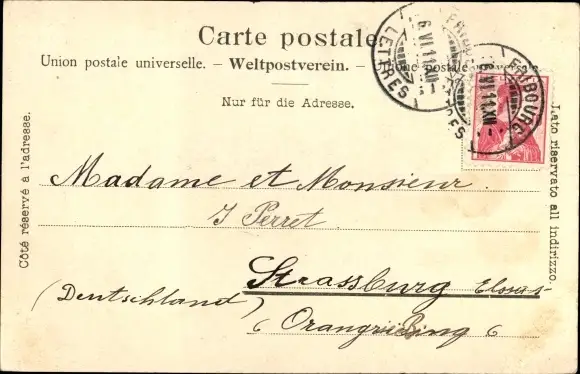 Carte postale.
Union postale universelle. – Weltpostverein. – Unione postale universale.
Nur für die Adresse.
Côté réservé à l'adresse.
Lato riservato all indirizzo.
FRIBOURG
LETTRES
6.VI.11.XII–
FRIBOURG
LETTRES
6.VI.11.XII–
Madame et Monsieur
J Perret
Strassburg Elsass
(Deutschland)
6 Orangeriering 6